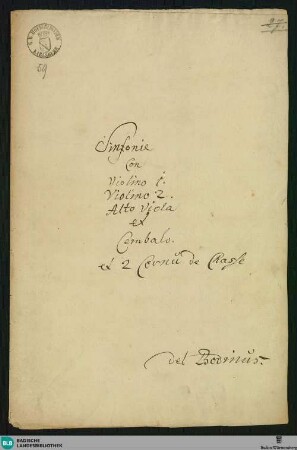 27.
59
Sinfonie
Con
Violino 1.
Violino 2.
Alto Viola
et
Cembalo.
et 2 Cornu de Chasse
del Bodinus.
BLB
BADISCHE
LANDESBIBLIOTHEK
Baden-Württemberg